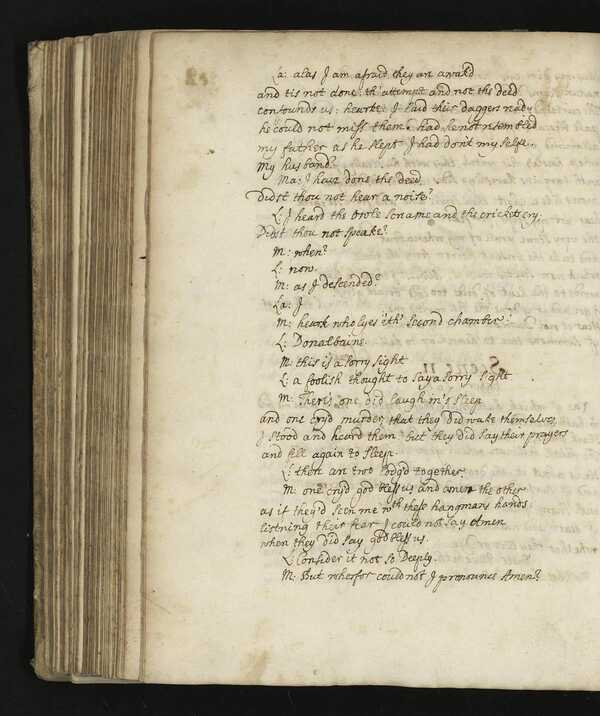 La: alas I am afraid they are awak'd
and tis not done: th'attempt and not the deed
confounds us: hearke: I laid their daggers ready
he could not miss them. had he not resembled
my father as he slept I had don't my selfe.
My husband?
Ma: I have done the deed
Didst thou not hear a noise?
L: I heard the owle screame and the crickets cry.
Didst thou not speake?
M: when?
L: now.
M: as I descended?
La: I
M: heark who lyes ith' second chamber?
L: Donalbaine.
M: this is a sorry sight
L: a foolish thought to say a sorry sight
M: Theris one did laugh in's sleep
and one cry'd murder, that they did wake themselves,
I stood and heard them but they did say their prayers
and fell again to sleep.
L: there are two lodg'd together
M: one cry'd god bless us and amen the other
as if they'd seen me wth these hangmans hands
listning their fear I could not say Amen
when they did say god bless us.
L: Consider it not so deeply.
M: But wherfor could not I pronounce Amen?